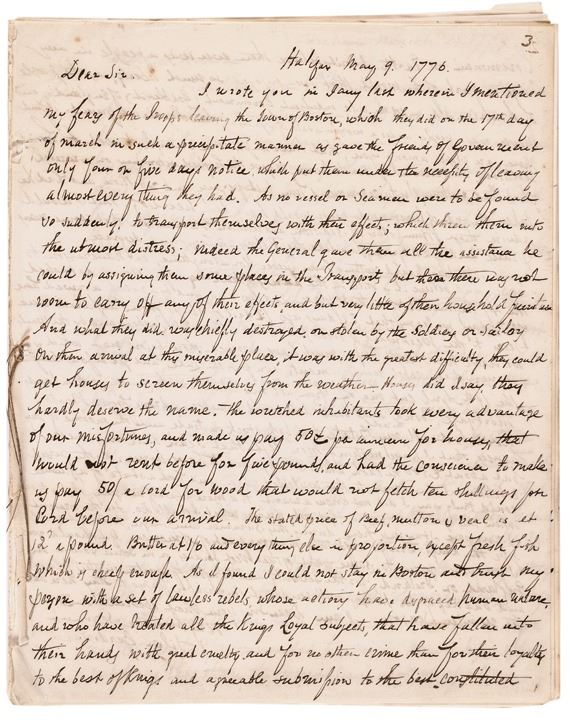 3
Halifax May 9. 1776.
Dear Sir.
I wrote you in Jany last wherein I mentioned
my fears of the Troops leaving the Town of Boston, which they did on the 17th day
of march in such a precipitate manner as gave the friends of Government
only four or five days notice, which put them under the necessity of leaving
almost every thing they had. As no vessel or Seamen were to be found
so suddenly to transport themselves with their effects; which threw them into
the utmost distress; indeed the General gave them all the assistance he
could by assigning them some places in the Transports, but there was not
room to carry off any of their effects, and but very little of their household furniture
And what they did was chiefly destroyed or stolen by the Soldiers or Sailors
On their arrival at this miserable place, it was with the greatest difficulty they could
get houses to screen themselves from the weather - Houses did I say they
hardly deserve the name. The wretched inhabitants took every advantage
of our misfortunes, and made us pay 50£ per annum for houses, that
would not rent before for five pounds, and had the conscience to make
us pay 50/ a cord for wood that would not fetch ten shillings per
Cord before our arrival. The stated price of Beef, mutton & veal is at
12d a pound. Butter at 1/6 and every thing else in proportion except fresh fish
which is cheap enough. As I found I could not stay in Boston and trust my
person with a set of lawless rebels whose actions have disgraced human nature,
and who have treated all the Kings Loyal subjects, that have fallen into
their hands with great cruelty, and for no other crime than for their loyalty
to the best of Kings and agreeable submission to the best constituted